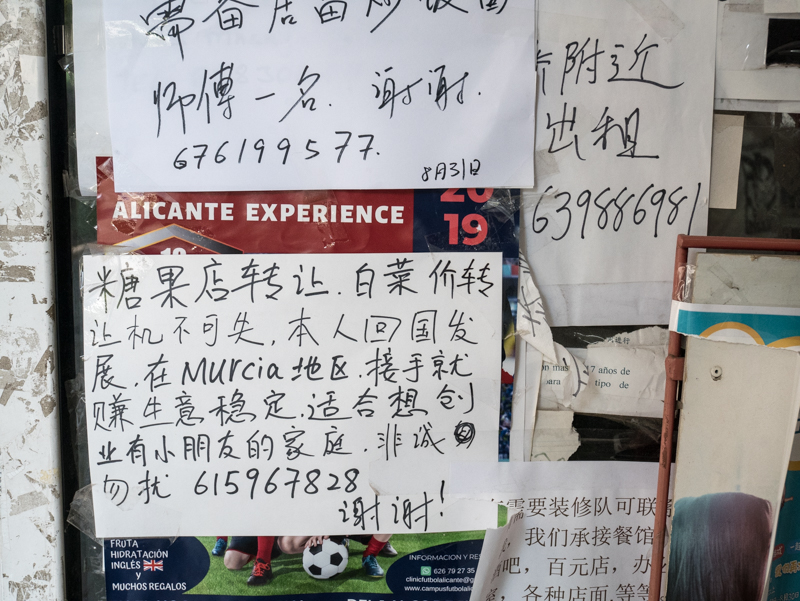 需备店面炒饭面
师傅一名. 谢谢.
676199577.
8月31日
附近
出租
639886981
2019
ALICANTE EXPERIENCE
糖果店转让.白菜价转
让机不可失,本人回国发
展.在Murcia地区.接手就
赚生意稳定.适合想创
业有小朋友的家庭.非诚
勿扰 615967828
谢谢!
17 años de
para
tipo de
需要装修队可联
我们承接餐馆
吧,百元店,办
各种店面,等等
FRUTA
HIDRATACIÓN
INGLÉS y
MUCHOS REGALOS
INFORMACION Y RES
626 79 27 35
clinicfutbolalicante@g
www.campusfutbolalic